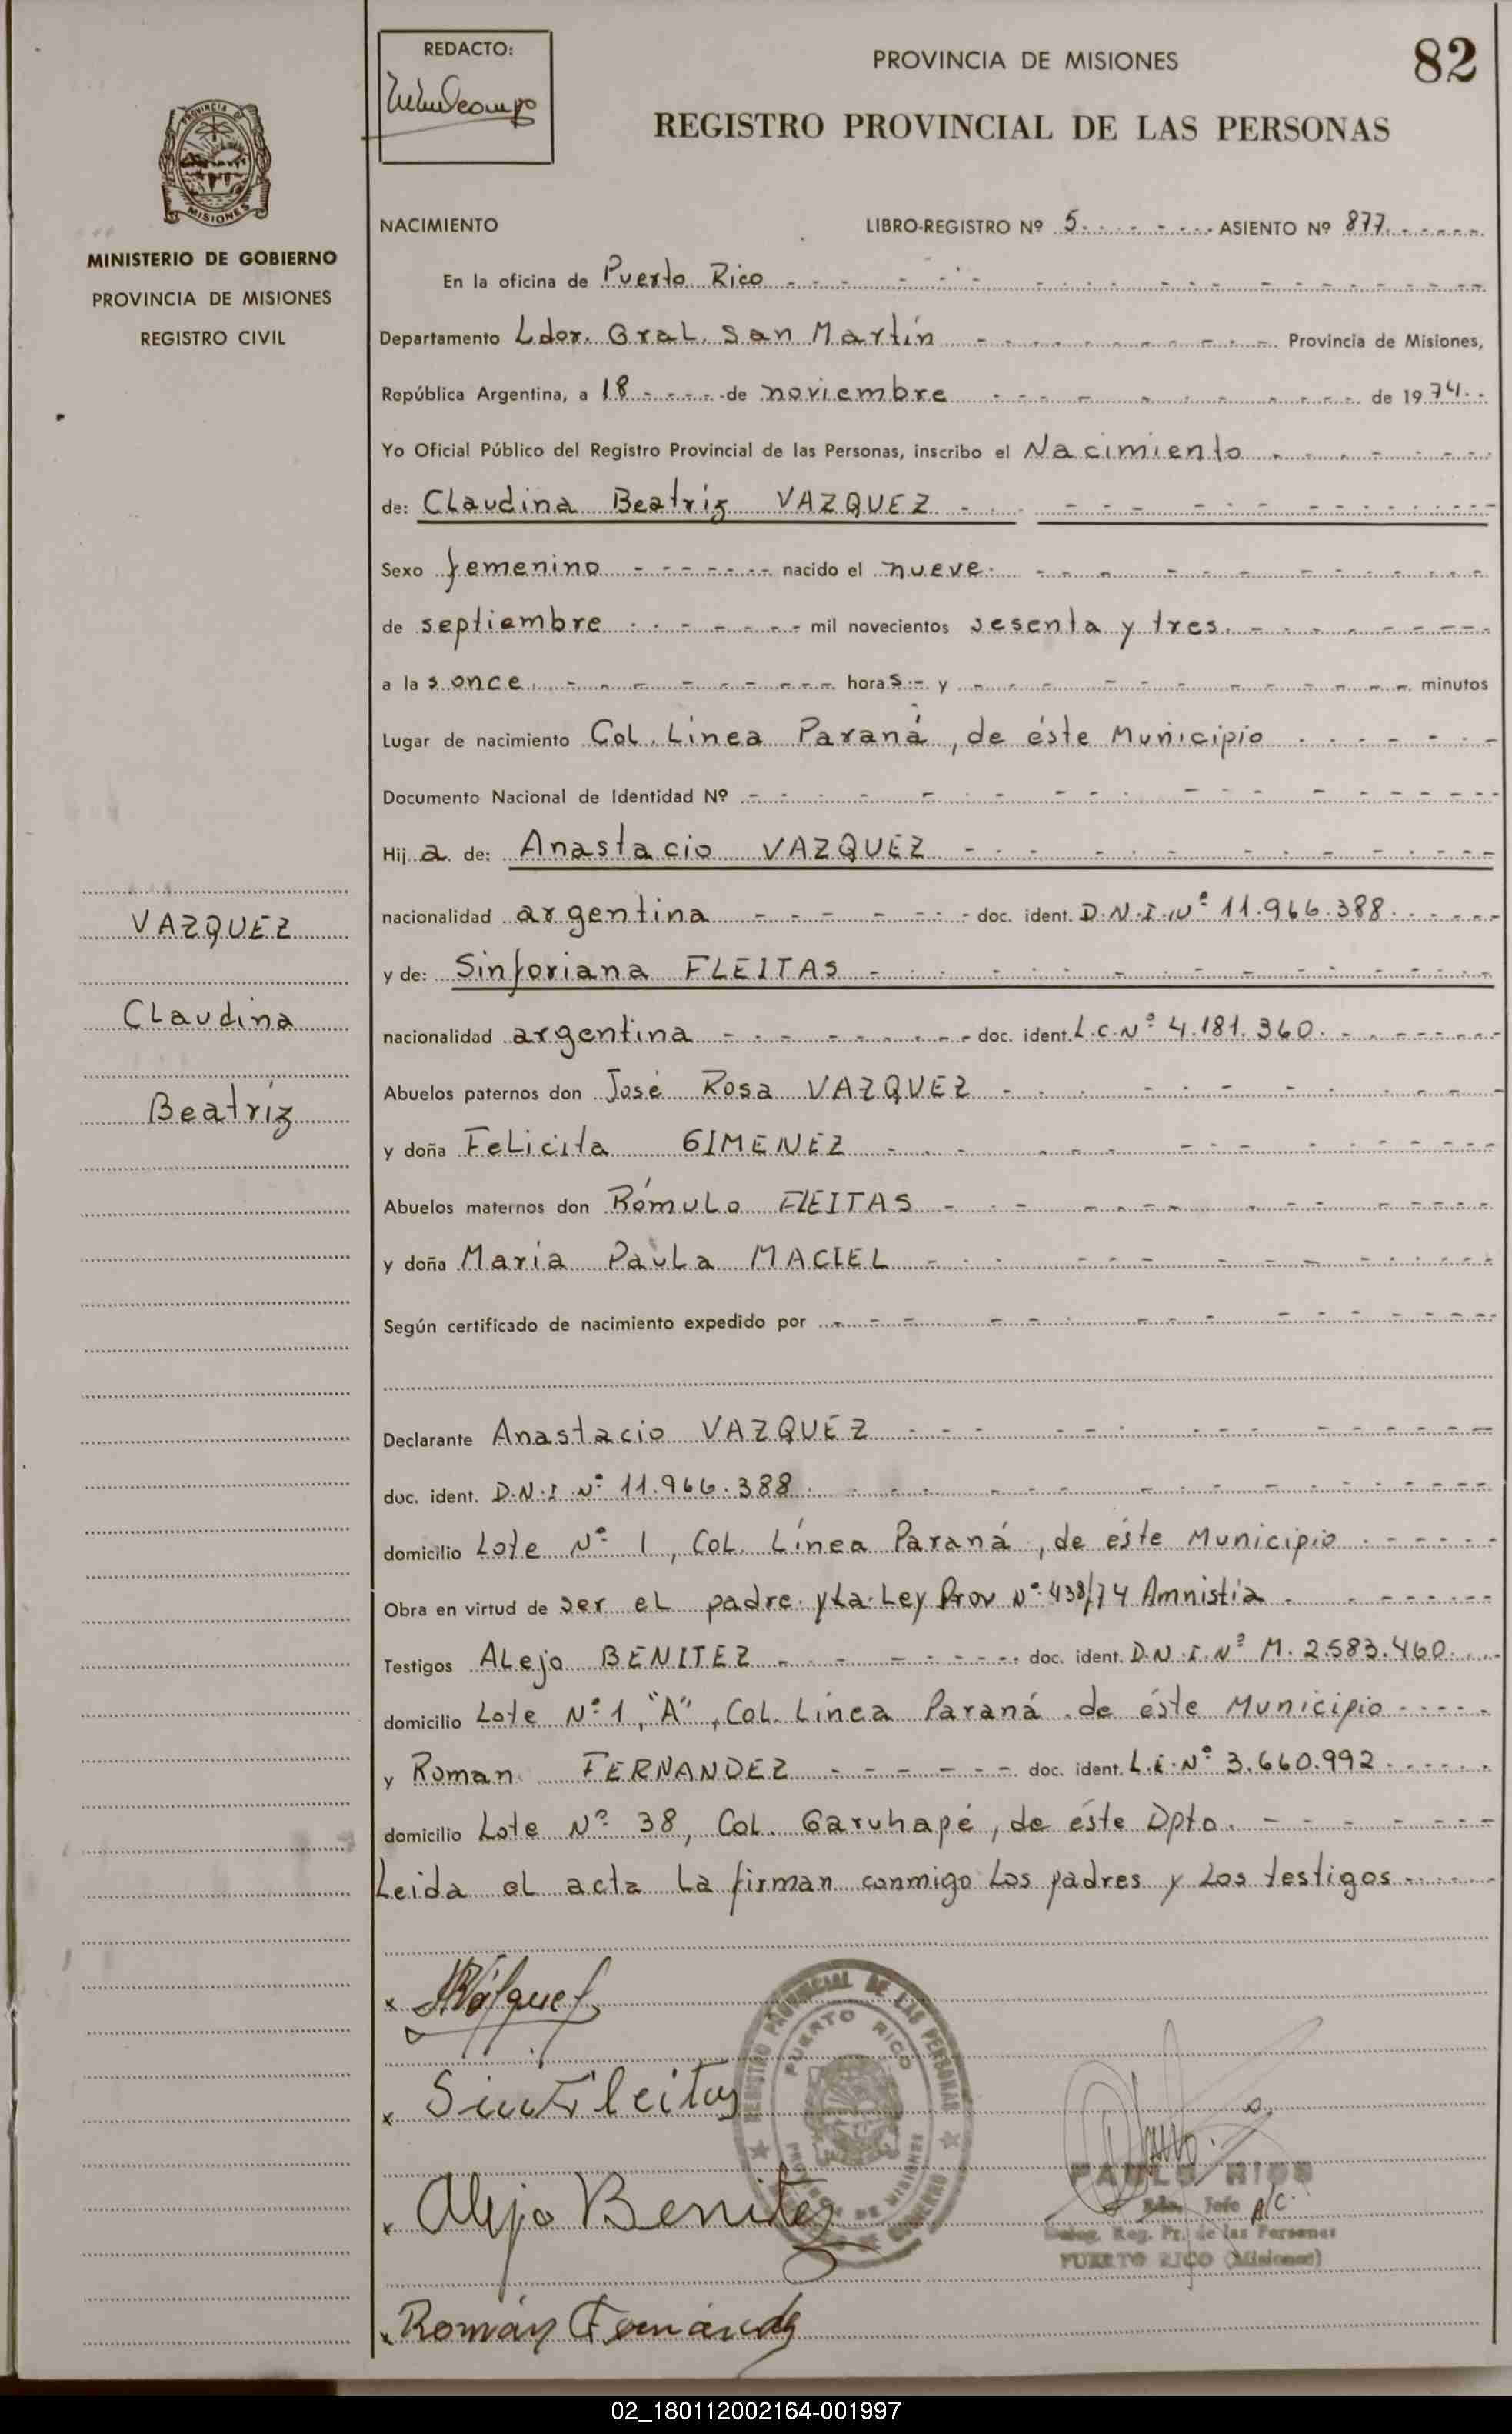 REDACTO:
PROVINCIA DE MISIONES
82
REGISTRO PROVINCIAL DE LAS PERSONAS
PROVINCIA DE
MISIONES
MINISTERIO DE GOBIERNO
PROVINCIA DE MISIONES
REGISTRO CIVIL
NACIMIENTO LIBRO-REGISTRO Nº 5 ASIENTO Nº 877
En la oficina de Puerto Rico
Departamento Ldor. Gral. San Martín Provincia de Misiones,
República Argentina, a 18 de noviembre de 1974
Yo Oficial Público del Registro Provincial de las Personas, inscribo el Nacimiento
de: Claudina Beatríz VAZQUEZ
Sexo femenino nacido el nueve
de septiembre mil novecientos sesenta y tres
a las once horas y minutos
Lugar de nacimiento Col. Línea Paraná, de éste Municipio
Documento Nacional de Identidad Nº
Hija de: Anastacio VAZQUEZ
nacionalidad argentina doc. ident. D.N.I. Nº 11.966.388
y de: Sinforiana FLEITAS
nacionalidad argentina doc. ident. L.C. Nº 4.181.360
Abuelos paternos don José Rosa VAZQUEZ
y doña Felicita GIMENEZ
Abuelos maternos don Rómulo FLEITAS
y doña María Paula MACIEL
Según certificado de nacimiento expedido por
Declarante Anastacio VAZQUEZ
doc. ident. D.N.I. Nº 11.966.388
domicilio Lote Nº 1, Col. Línea Paraná, de éste Municipio
Obra en virtud de ser el padre y la Ley Prov Nº 438/74 Amnistía
Testigos Alejo BENITEZ doc. ident. D.N.I. Nº M. 2.583.460
domicilio Lote Nº 1, "A", Col. Línea Paraná de éste Municipio
y Roman FERNANDEZ doc. ident. L.E. Nº 3.660.992
domicilio Lote Nº 38, Col. Garuhapé, de éste Dpto.
Leida el acta la firman conmigo los padres y los testigos
VAZQUEZ
Claudina
Beatríz
x AVázquez
x Sin Fleitas
x Alejo Benitez
x Román Fernández
REGISTRO PROVINCIAL DE LAS PERSONAS
PUERTO RICO
PROVINCIA DE MISIONES
PAULO RIOS
Jefe A/C.
Deleg. Reg. Pr. de las Personas
PUERTO RICO (Misiones)
02_180112002164-001997